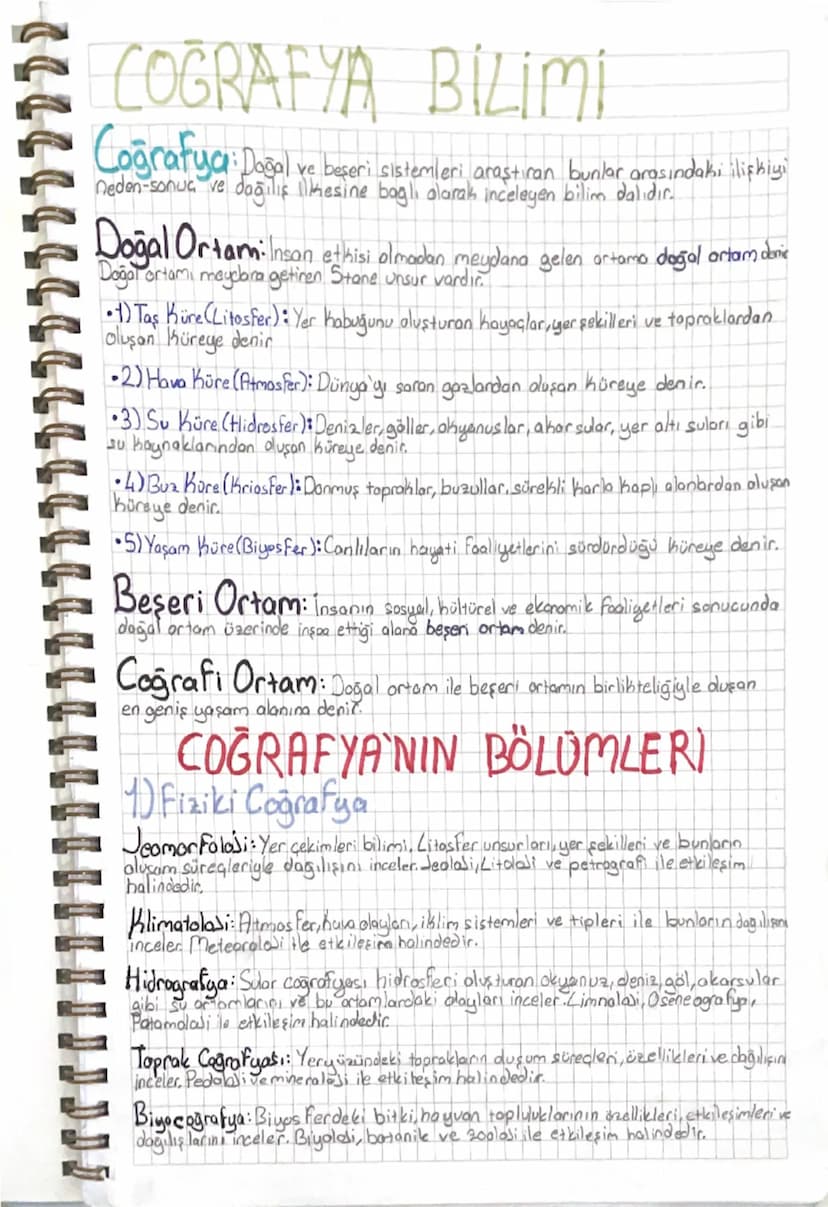 COĞRAFYA BİLİMİ
Coğrafya: Doğal ve beşeri sistemleri araştıran bunlar arasındaki ilişkiyi
neden-sonuç ve dağılış ilkesine bağlı olarak inceleyen bilim dalıdır.
Doğal Ortam: İnsan etkisi olmadan meydana gelen ortama doğal ortam denir
Doğal ortamı meydana getiren 5 tane unsur vardır.
•1) Taş Küre (Litosfer): Yer kabuğunu oluşturan kayaçlar, yer şekilleri ve topraklardan
oluşan küreye denir
•2) Hava Küre (Atmosfer): Dünya'yı saran gazlardan oluşan küreye denir.
•3) Su Küre (Hidrosfer): Denizler, göller, okyanuslar, akarsular, yer altı suları gibi
su kaynaklarından oluşan küreye denir.
•4) Buz Küre (Kriosfer): Donmuş topraklar, buzullar, sürekli karla kaplı alanlardan oluşan
küreye denir.
•5) Yaşam Küre (Biyosfer): Canlıların hayati faaliyetlerini sürdürdüğü küreye denir.
Beşeri Ortam: İnsanın sosyal, kültürel ve ekonomik faaliyetleri sonucunda
doğal ortam üzerinde inşaa ettiği alana beşeri ortam denir.
Coğrafi Ortam: Doğal ortam ile beşeri ortamın birlikteliğiyle oluşan
en geniş yaşam alanına denir.
COĞRAFYA'NIN BÖLÜMLERİ
1) Fiziki Coğrafya
Jeomorfoloji: Yer çekimleri bilimi. Litosfer unsurları, yer şekilleri ve bunların
oluşum süreçleriyle dağılışını inceler. Jeoloji, Litoloji ve petrografi ile etkileşim
halindedir.
Klimatoloji: Atmosfer, hava olayları, iklim sistemleri ve tipleri ile bunların dağılışını
inceler. Meteoroloji ile etkileşim halindedir.
Hidrografya: Sular coğrafyası hidrosferi oluşturan okyanuz, deniz, göl, akarsular
gibi su ortamlarını ve bu ortamlardaki olayları inceler. Limnoloji, Oseneografya,
Patamoloji ile etkileşim halindedir.
Toprak Coğrafyası: Yeryüzündeki toprakların oluşum süreçleri, özellikleri ve dağılışını
inceler. Pedoloji ve mineraloji ile etkileşim halindedir.
Biyocoğrafya: Biyosferdeki bitki, hayvan topluluklarının özellikleri, etkileşimleri ve
dağılışlarını inceler. Biyoloji, botanik ve zooloji ile etkileşim halindedir.